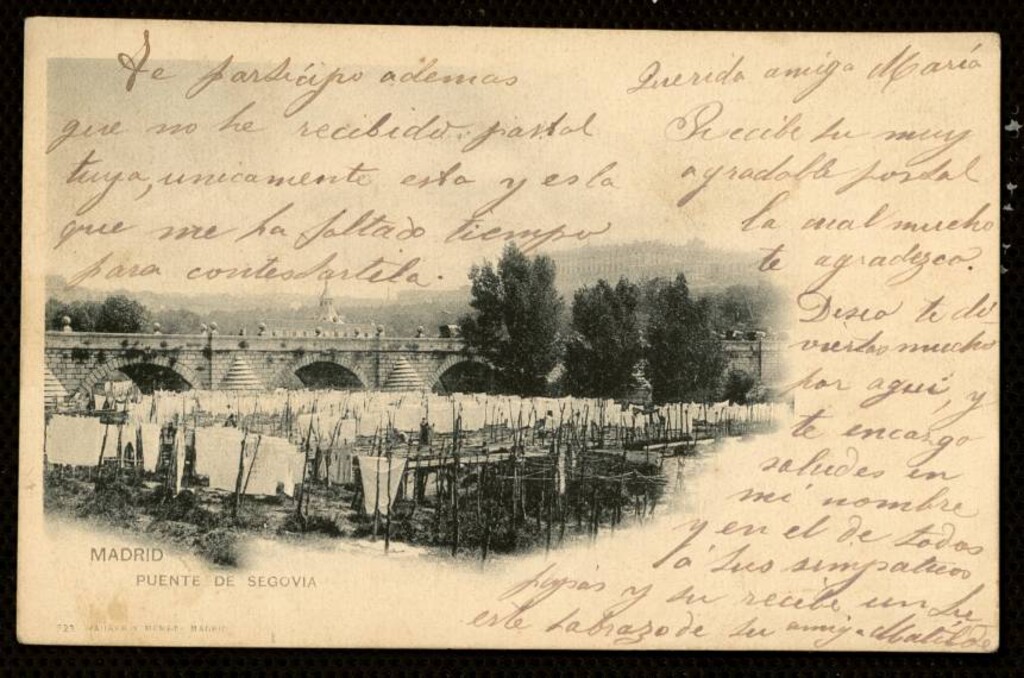 Querida amiga María
Recibe tu muy
agradable postal
la cual mucho
te agradezco.
Deseo te di-
viertas mucho
por aquí, y
te encargo
saludes en
mi nombre
y en el de todos
á tus simpáticos
papás y tu recibe un
este tabrazo de tu amiga Matilde
Te participo ademas
que no he recibido postal
tuya, unicamente esta y es la
que me ha faltado tiempo
para contestartela.
MADRID
PUENTE DE SEGOVIA
HAUSER Y MENET. MADRID